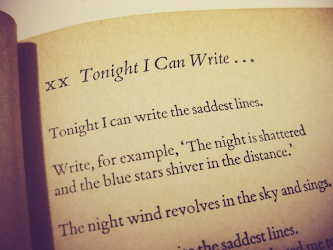 xx Tonight I Can Write ...
Tonight I can write the saddest lines.
Write, for example, 'The night is shattered
and the blue stars shiver in the distance.'
The night wind revolves in the sky and sings.
the saddest lines.